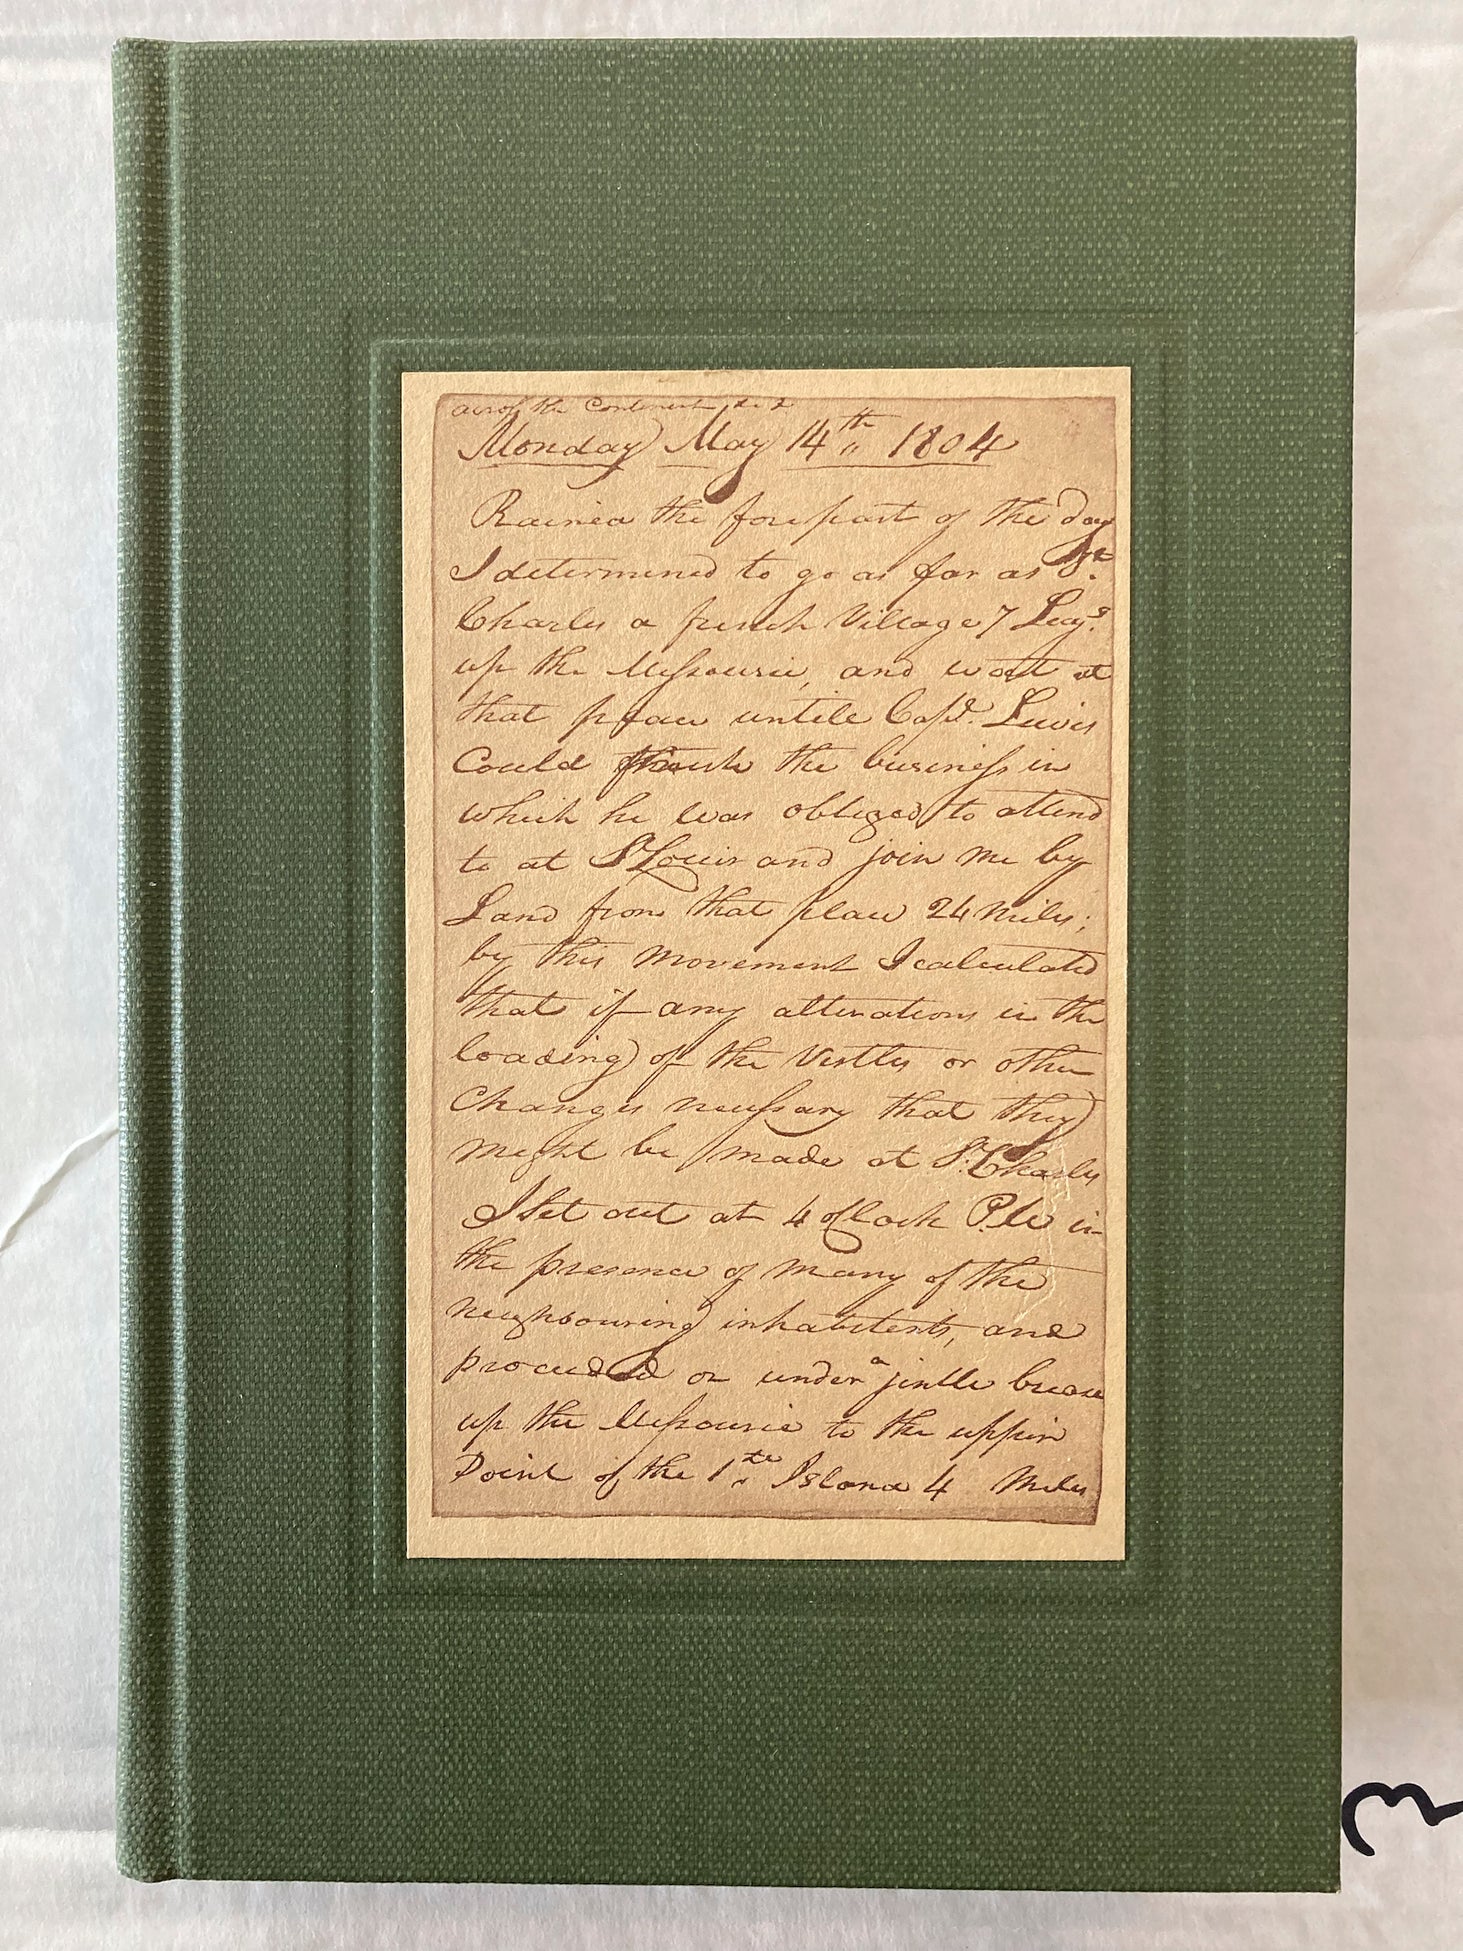 across the Continent &c &
Monday May 14th 1804
Rained the fore part of the day
I determined to go as far as St.
Charles a french Village 7 Leags.
up the Missourie, and wait at
that place untile Capt. Lewis
Could finish the business in
which he was obliged to attend
to at St Louis and join me by
Land from that place 24 miles;
by this movement I calculated
that if any alterations in the
loading of the Vestles or other
Changes necessary that they
might be made at St. Charles
I Set out at 4 oClock P.M in
the presence of many of the
neighbouring inhabitents, and
proceeded on under a jentle brease
up the Missourie to the upper
Point of the 1st Island 4 Miles